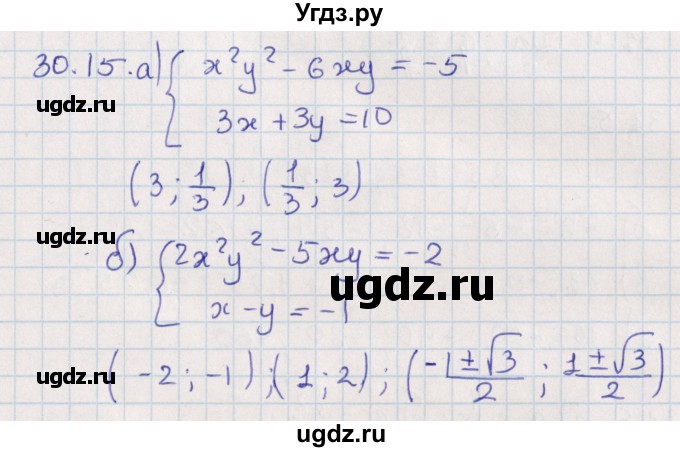 Угдз.ру
30.15.а) { x²y² - 6xy = -5
3x + 3y = 10
ugdz.ru ugdz.ru
(3; 1/3); (1/3; 3)
ugdz.ru
б) { 2x²y² - 5xy = -2
ugdz.ru
x - y = -1
ugdz.ru ugdz.ru
(-2; -1); (1; 2); (-1±√3/2; 1±√3/2)
ugdz.ru